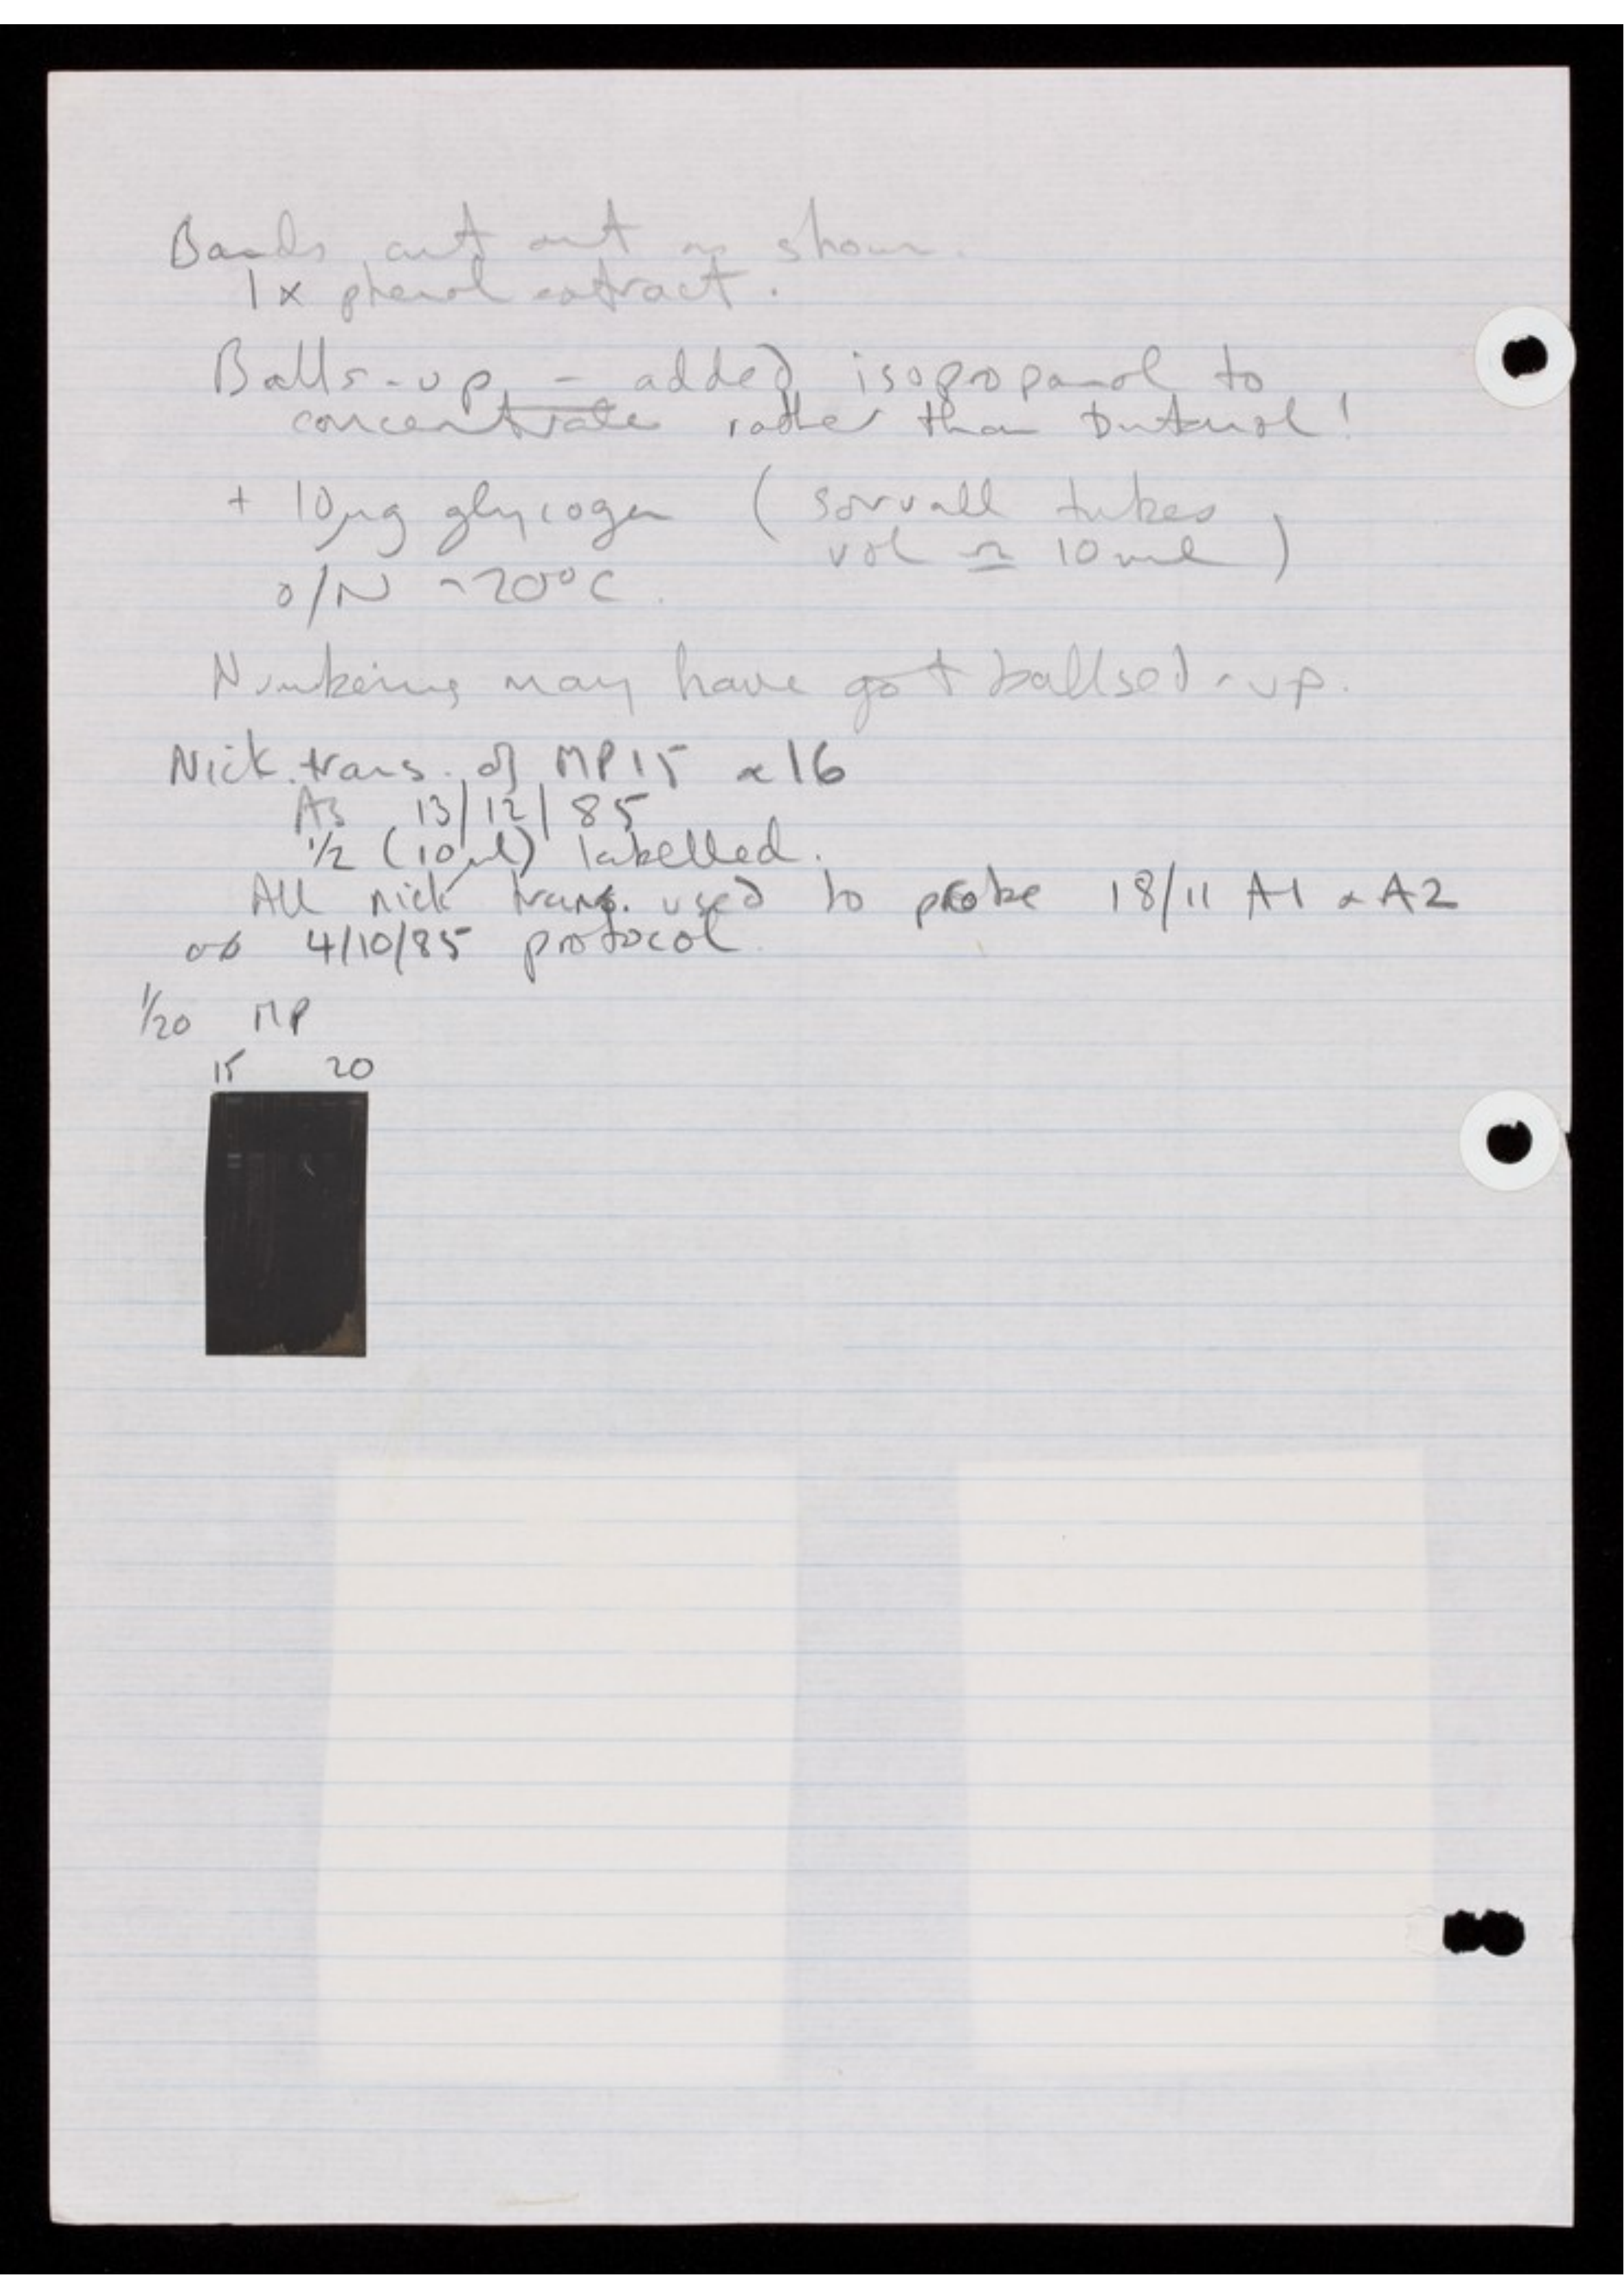 Bands cut out as shown.
1x phenol extract.
Balls-up - added isopropanol to
concentrate rather than butanol!
+ 10µg glycogen (sorvall tubes
vol ≃ 10ml)
o/N -20°C.
Numbering may have got ballsed-up.
Nick. trans. of MP15 & 16
As 13/12/85
1/2 (10µl) labelled.
All nick trans. used to probe 18/11 A1 & A2
as 4/10/85 protocol.
1/20 MP
15 20